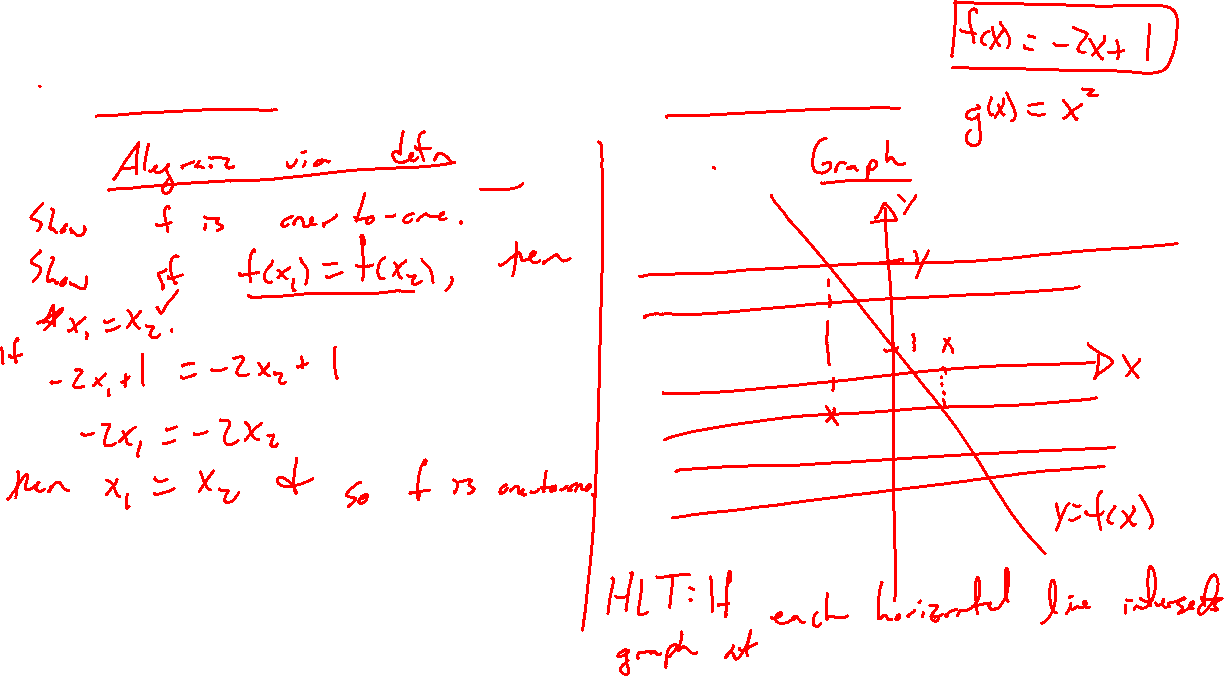 f(x) = -2x + 1
g(x) = x²
Algebraic via defn
Show f is one-to-one.
Show if f(x₁) = f(x₂), then
x₁ = x₂ ✓.
If -2x₁ + 1 = -2x₂ + 1
-2x₁ = -2x₂
then x₁ = x₂ & so f is one-to-one.
Graph
Y
y
1 x
X
x
y = f(x)
HLT: If each horizontal line intersects
graph at